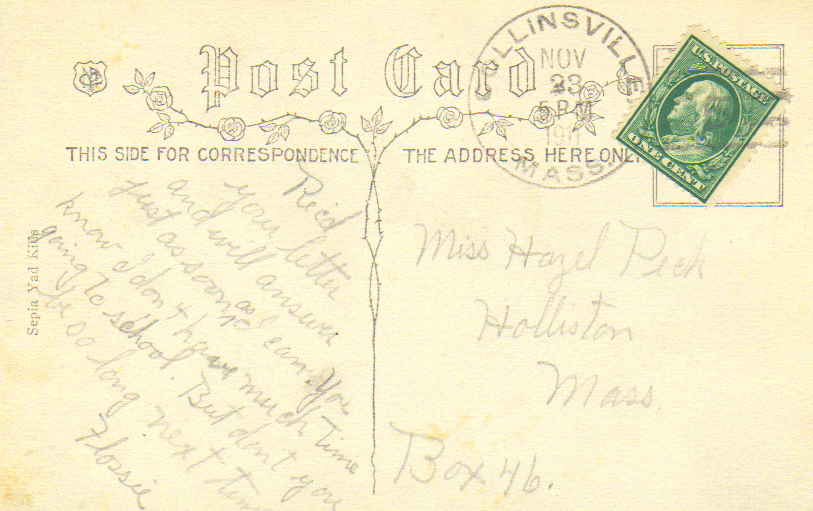 Post Card
THIS SIDE FOR CORRESPONDENCE
THE ADDRESS HERE ONLY
COLLINSVILLE
NOV
23
5 PM
191
MASS.
U.S. POSTAGE
ONE CENT
Rec'd
your letter
and will answer
just as soon as I can. You
know I don't have much time
going to school. But don't you
be so long next time
Flossie
Sepia Yad Kids
Miss Hazel Peck
Holliston
Mass.
Box 46.